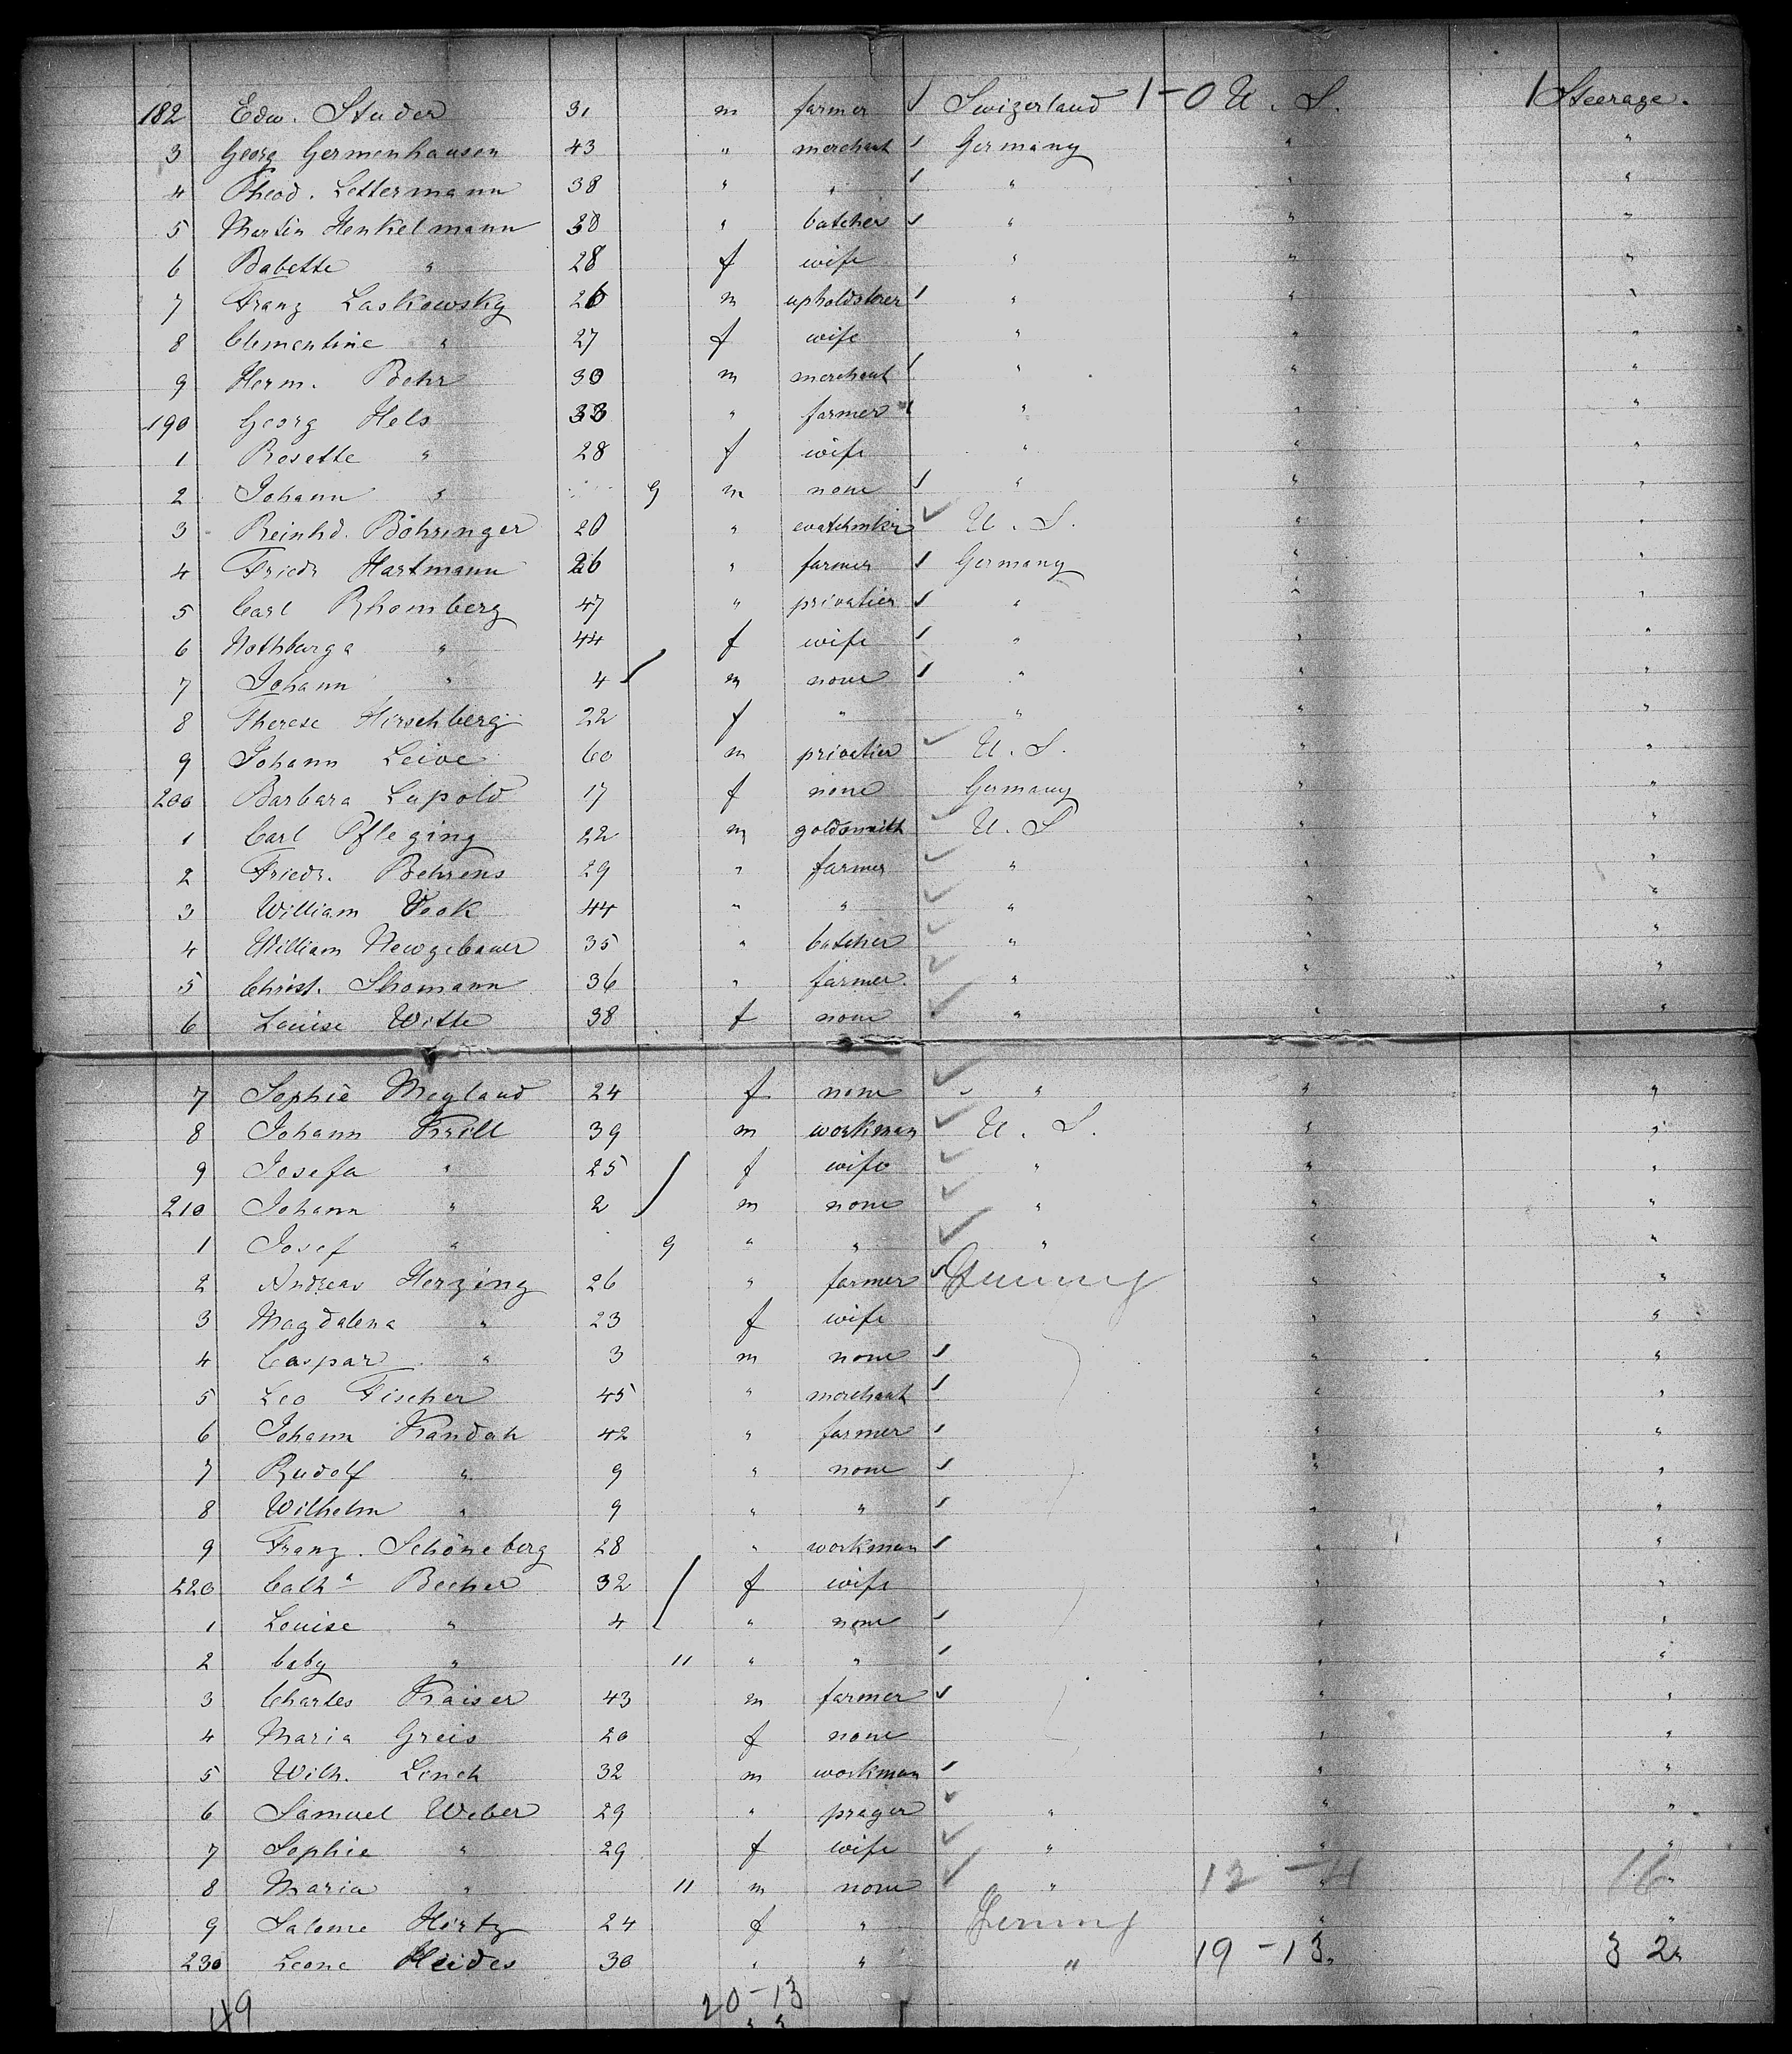 182 Edw. Studer 31 m farmer Swizerland 1-0 U. S. 1 Steerage.
3 Georg Germenhausen 43 " merchant Germany " "
4 Theod. Lettermann 38 " " " " "
5 Martin Henkelmann 38 " butcher " " "
6 Babette " 28 f wife " " "
7 Franz Laskowsky 26 m upholdsterer " " "
8 Clementine " 27 f wife " " "
9 Herm. Behr 30 m merchant " " "
190 Georg Hels 33 " farmer " " "
1 Rosette " 28 f wife " " "
2 Johann " 9 m none " " "
3 Reinhd. Böhringer 20 " watchmkr U. S. " "
4 Friedr Hartmann 26 " farmer Germany " "
5 Carl Rhomberg 47 " privatier " " "
6 Nothburga " 44 f wife " " "
7 Johann " 4 m none " " "
8 Therese Hirschberg 22 f " " " "
9 Johann Leive 60 m privatier U. S. " "
200 Barbara Lupold 17 f none Germany " "
1 Carl Pfleging 22 m goldsmith U. S " "
2 Friedr. Behrens 29 " farmer " " "
3 William Vook 44 " " " " "
4 William Newgebauer 35 " butcher " " "
5 Christ. Shomann 36 " farmer. " " "
6 Louise Witte 38 f none " " "
7 Sophie Meyland 24 f none " " "
8 Johann Krill 39 m workman U. S. " "
9 Josefa " 25 f wife " " "
210 Johann " 2 m none " " "
1 Josef " 9 " " " " "
2 Andreas Herzing 26 " farmer Germny " "
3 Magdalena " 23 f wife " "
4 Caspar " 3 m none " "
5 Leo Fischer 45 " merchant " "
6 Johann Kandah 42 " farmer " "
7 Rudolf " 9 " none " "
8 Wilhelm " 9 " " " "
9 Franz. Schöneberg 28 " workman " "
220 Catha Becher 32 f wife " "
1 Louise " 4 " none " "
2 baby " 11 " " " "
3 Charles Kaiser 43 m farmer " "
4 Maria Greis 20 f none " "
5 Wilh. Linch 32 m workman " "
6 Samuel Weber 29 " prager " " "
7 Sophie " 29 f wife " " "
8 Maria " 11 m none " 12-4 " 16 "
9 Salome Hirtz 24 f " Germny " "
230 Leone Heides 30 " " " 19-13 " 32 "
49 20-13